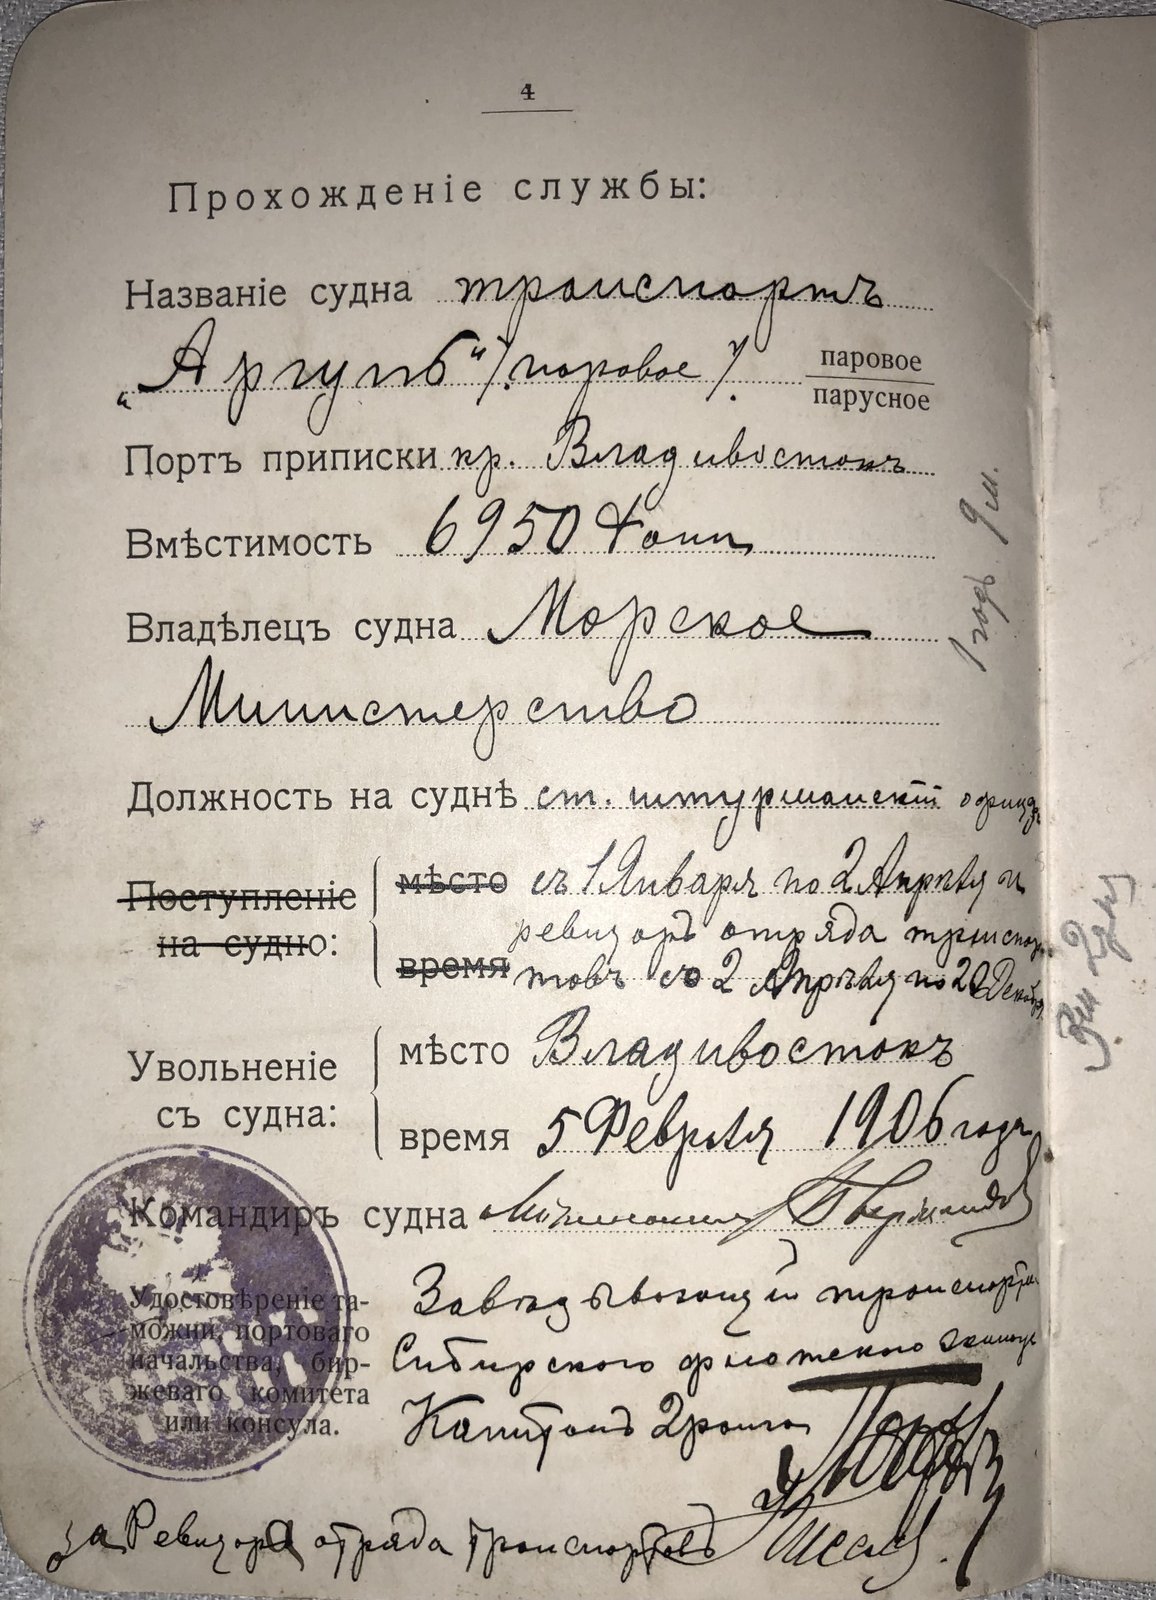 4
Прохожденіе службы:
Названіе судна транспортъ
„Аргунь“ /паровое/. паровое
парусное
Портъ приписки кр. Владивостокъ
Вмѣстимость 6950 тонн
Владѣлецъ судна Морское
Министерство
Должность на суднѣ ст. штурманскій офицеръ
Поступленіе на судно: мѣсто съ 1 Января по 2 Апрѣля и
ревизоръ отряда транспор-
время товъ со 2 Апрѣля по 20 Декабря
Увольненіе съ судна: мѣсто Владивостокъ
время 5 Февраля 1906 года
Командиръ судна
Удостовѣреніе та-
можни, портоваго
начальства, бир-
жеваго комитета
или консула.
Завѣдывающій транспортами
Сибирского флотского экипажа
Капитанъ 2 ранга
за Ревизора отряда транспортовъ
1 годъ 9 м.